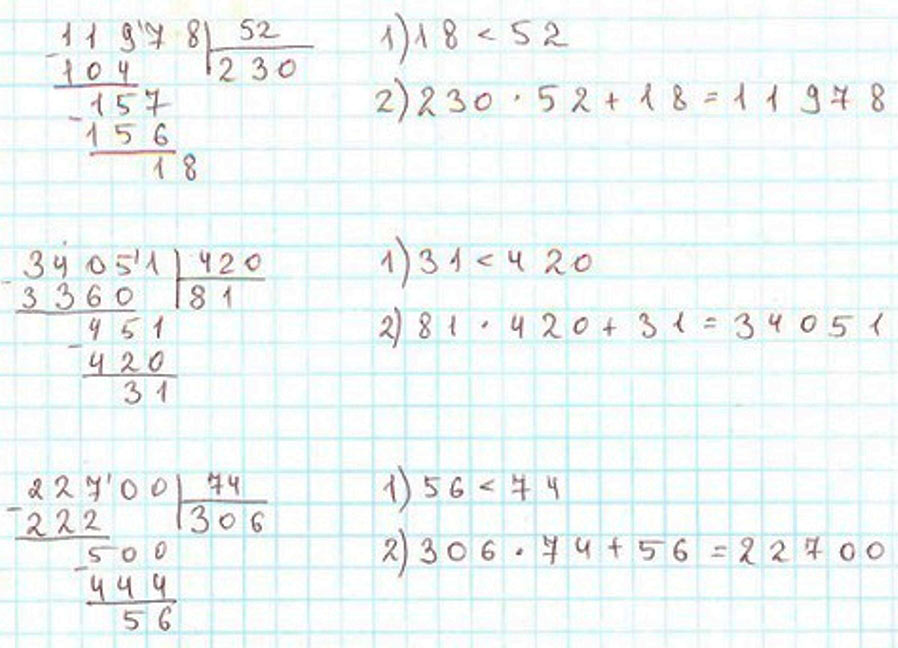 11978 52
104 230
157
156
18
1) 18 < 52
2) 230 · 52 + 18 = 11978
34051 420
3360 81
451
420
31
1) 31 < 420
2) 81 · 420 + 31 = 34051
22700 74
222 306
500
444
56
1) 56 < 74
2) 306 · 74 + 56 = 22700